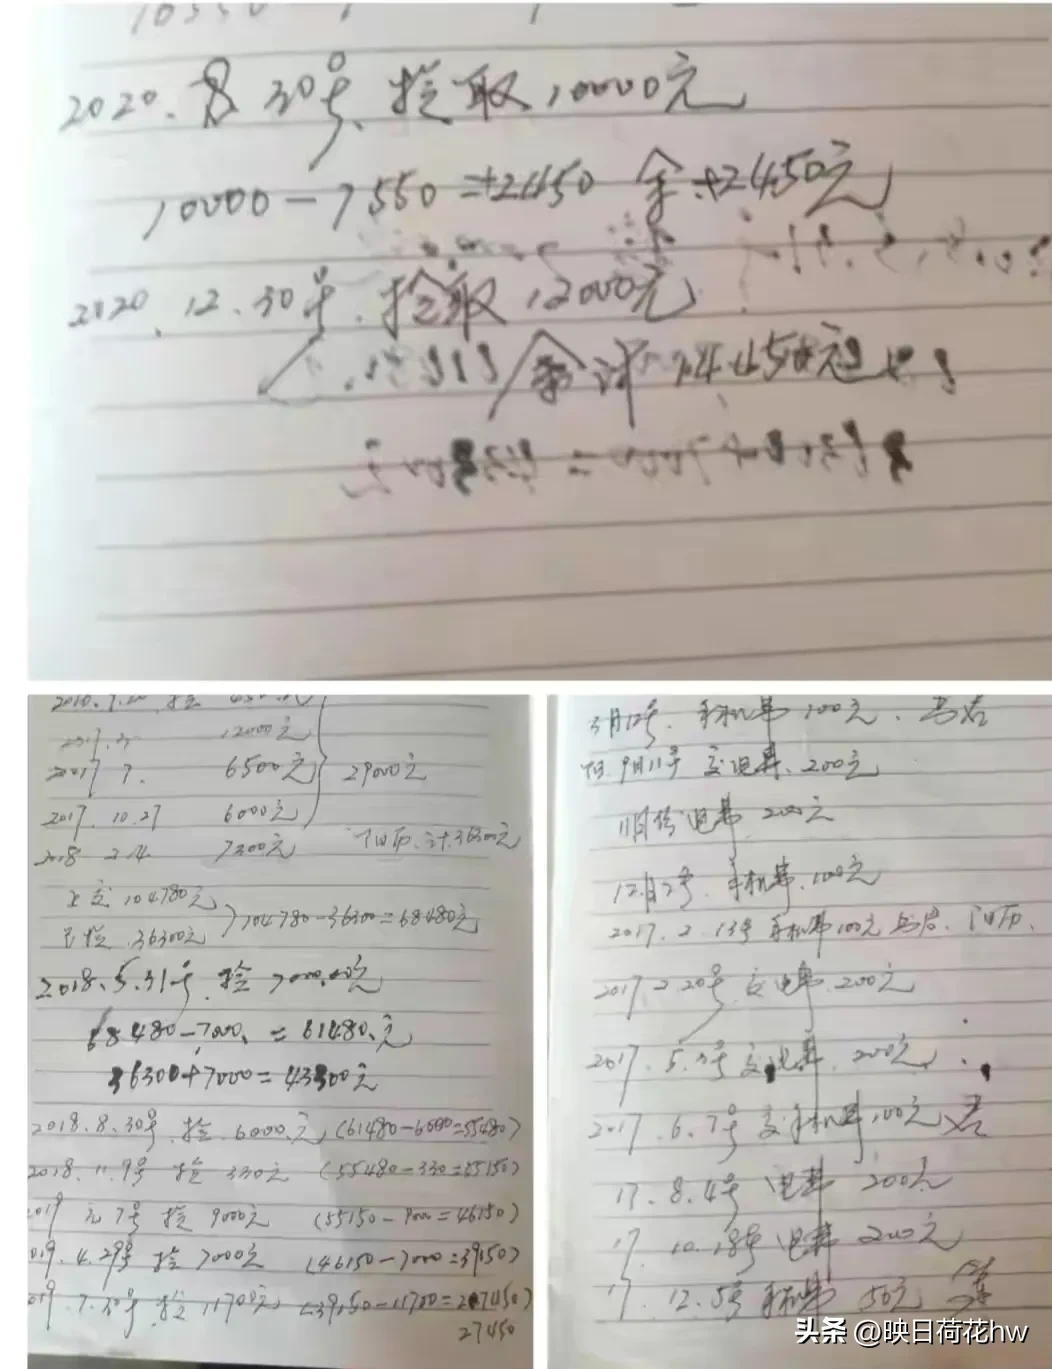 2020.8 30号.捡取10000元
10000-7550=+2450 余+2450元
2020.12.30号.捡取12000元
余计14450元
12000元
2017 7. 6500元 29000元
2017.10.27 6000元
2018 2.14 7300元 计36300元
上交104780元
已捡36300元 104780-36300=68480元
2018.5.31号.捡7000.00元
68480-7000=61480.元
36300+7000=43300元
2018.8.30号.捡.6000.元(61480-6000=55480)
2018.11.9号 捡330元 (55480-330=55150)
2019元7号 捡9000元 (55150-9000=46150)
019.4.29号 捡7000元 (46150-7000=39150)
019.7.30号.捡11700元 (39150-11700=27450)
27450
3月12号.手机费100元.
9月11号交电费.200元
11月份电费200元
12月2号.手机费.100元
2017.2.13号手机费100元
2017.2.20号.交电费.200元
2017.5.3号交电费.200元
2017.6.7号交手机费100元
17.8.4号 电费200元
17.10.18号电费200元
17.12.5号手机费50元
头条@映日荷花hw